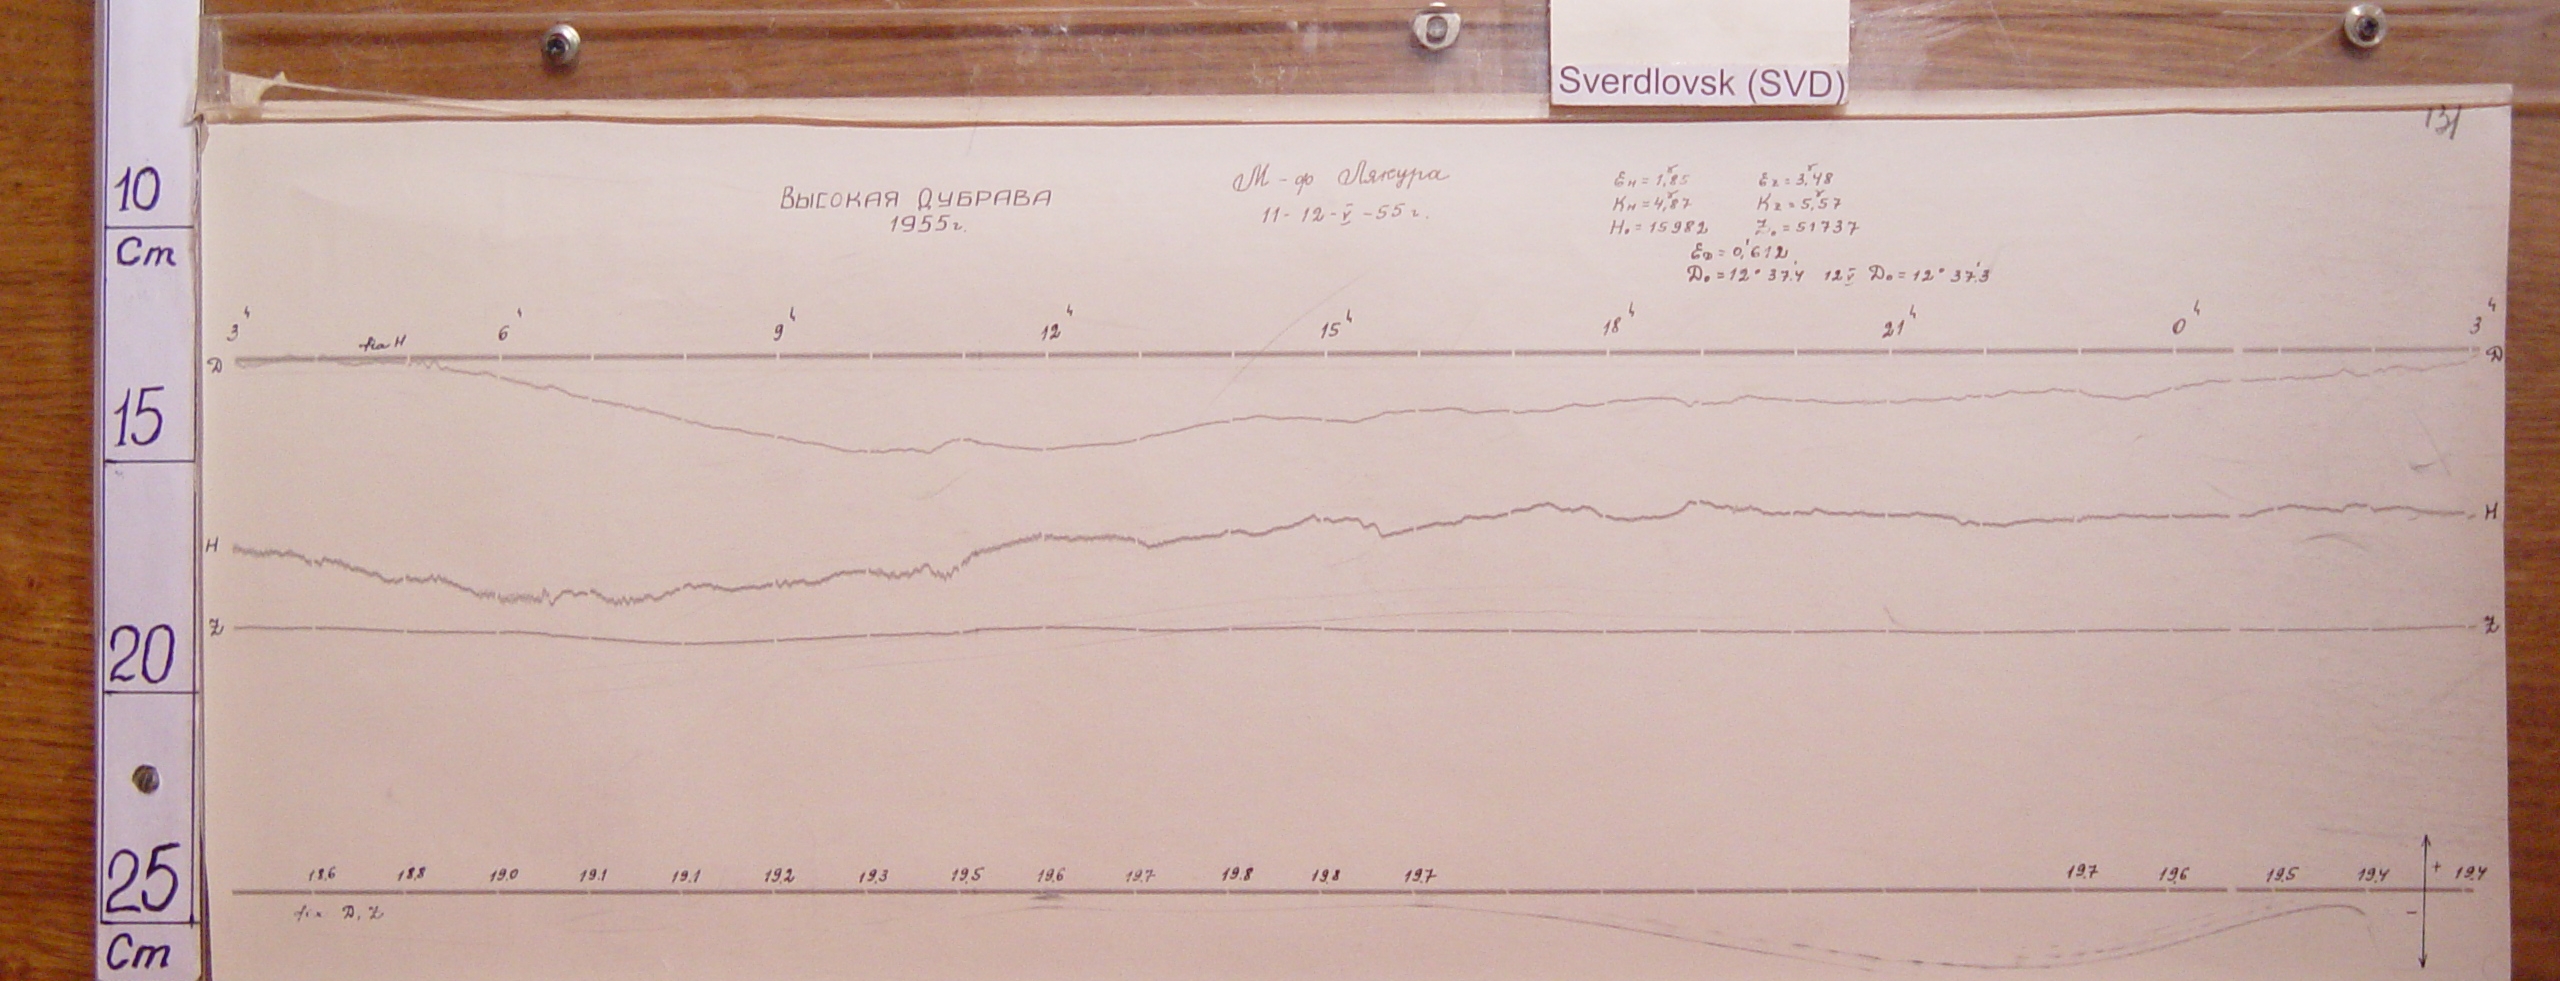 Sverdlovsk (SVD)
131
10
Cm
15
20
25
Cm
ВЫСОКАЯ ДУБРАВА
1955г.
М-ф Лякура
11-12-V-55г.
Ен = 1,γ85 Еz = 3,γ48
Кн = 4,γ87 Кz = 5,γ57
H₀ = 15982 Z₀ = 51737
ЕD = 0,'612
D₀ = 12° 37.'4 12V D₀ = 12° 37.'3
3ч 6ч 9ч 12ч 15ч 18ч 21ч 0ч 3ч
fix H
D D
H H
Z Z
18.6 18.8 19.0 19.1 19.1 19.2 19.3 19.5 19.6 19.7 19.8 19.8 19.7 19.7 19.6 19.5 19.4 + 19.4
fix D, Z −